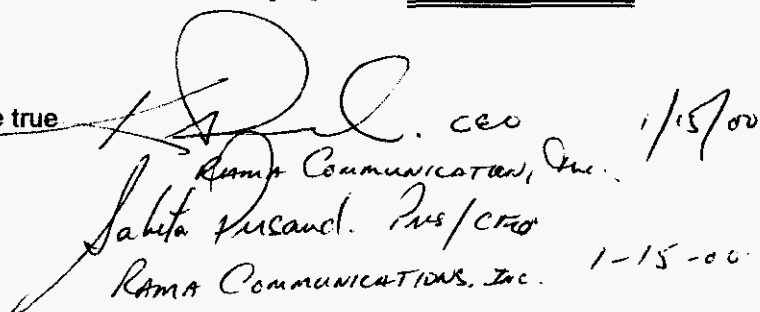 e true
CEO 1/15/00
Rama Communication, Inc.
Sabita Pres/CFO
RAMA COMMUNICATIONS, INC. 1-15-00